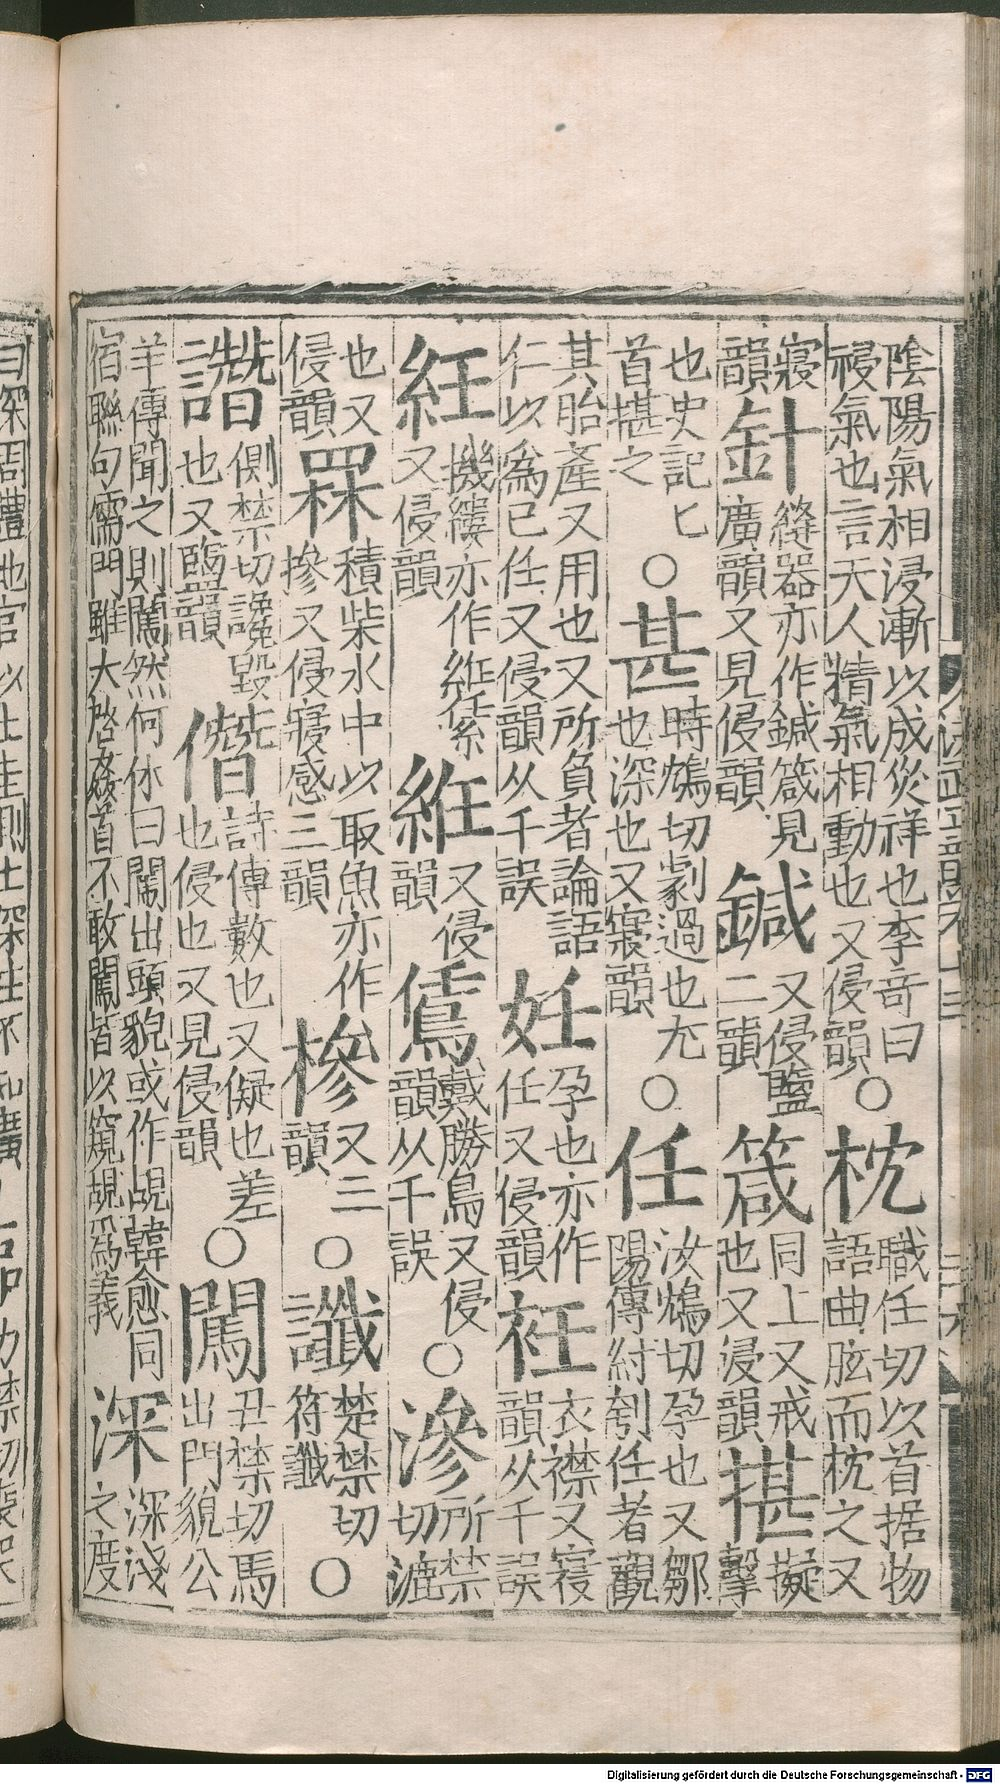 陰陽氣相浸漸以成災祥也李奇曰
祲氣也言天人精氣相動也又侵韻○枕職任切以首据物
語曲肱而枕之又
寢
韻針縫器亦作鍼箴見
廣韻又見侵韻鍼又侵鹽
二韻箴同上又戒
也又浸韻揕擬
擊
也史記匕
首揕之○甚時鴆切劇過也尤
也深也又寢韻○任汝鴆切孕也又鄒
陽傳紂刳任者觀
其胎產又用也又所負者論語
仁以爲已任又侵韻从千誤妊孕也亦作
任又侵韻衽衣襟又寑
韻从千誤
紝機縷亦作
又侵韻絍又侵
韻鵀戴勝鳥又侵
韻从千誤○滲所禁
切漉
也又
侵韻罧積柴水中以取魚亦作
摻又侵寢感三韻槮又三
韻○讖楚禁切
符讖○
譖側禁切讒毀
也又鹽韻僭詩傳數也又儗也差
也侵也又見侵韻○闖丑禁切馬
出門貌公
羊傳聞之則闖然何休曰闖出頭貌或作覘韓愈同
宿聯句儒門雖大啓姦首不敢闖皆以窺覘爲義深深淺
之度
Digitalisierung gefördert durch die Deutsche Forschungsgemeinschaft - DFG